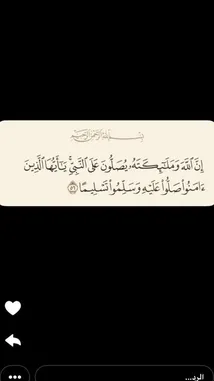 بِسْمِ اللَّهِ الرَّحْمَٰنِ الرَّحِيمِ
إِنَّ ٱللَّهَ وَمَلَـٰٓئِكَتَهُۥ يُصَلُّونَ عَلَى ٱلنَّبِيِّ ۚ يَـٰٓأَيُّهَا ٱلَّذِينَ
ءَامَنُوا۟ صَلُّوا۟ عَلَيْهِ وَسَلِّمُوا۟ تَسْلِيمًا ۝٥٦
الرد...